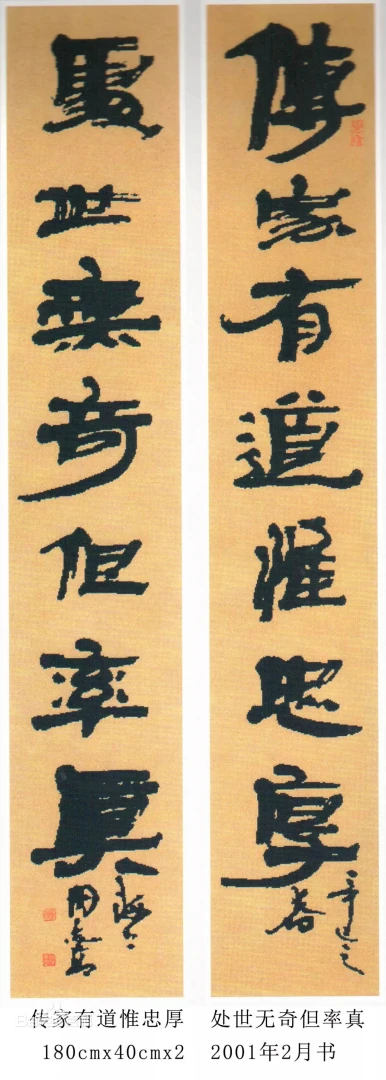 傳家有道惟忠厚
辛巳之
春
處世無奇但率真
传家有道惟忠厚 处世无奇但率真
180cmx40cmx2 2001年2月书